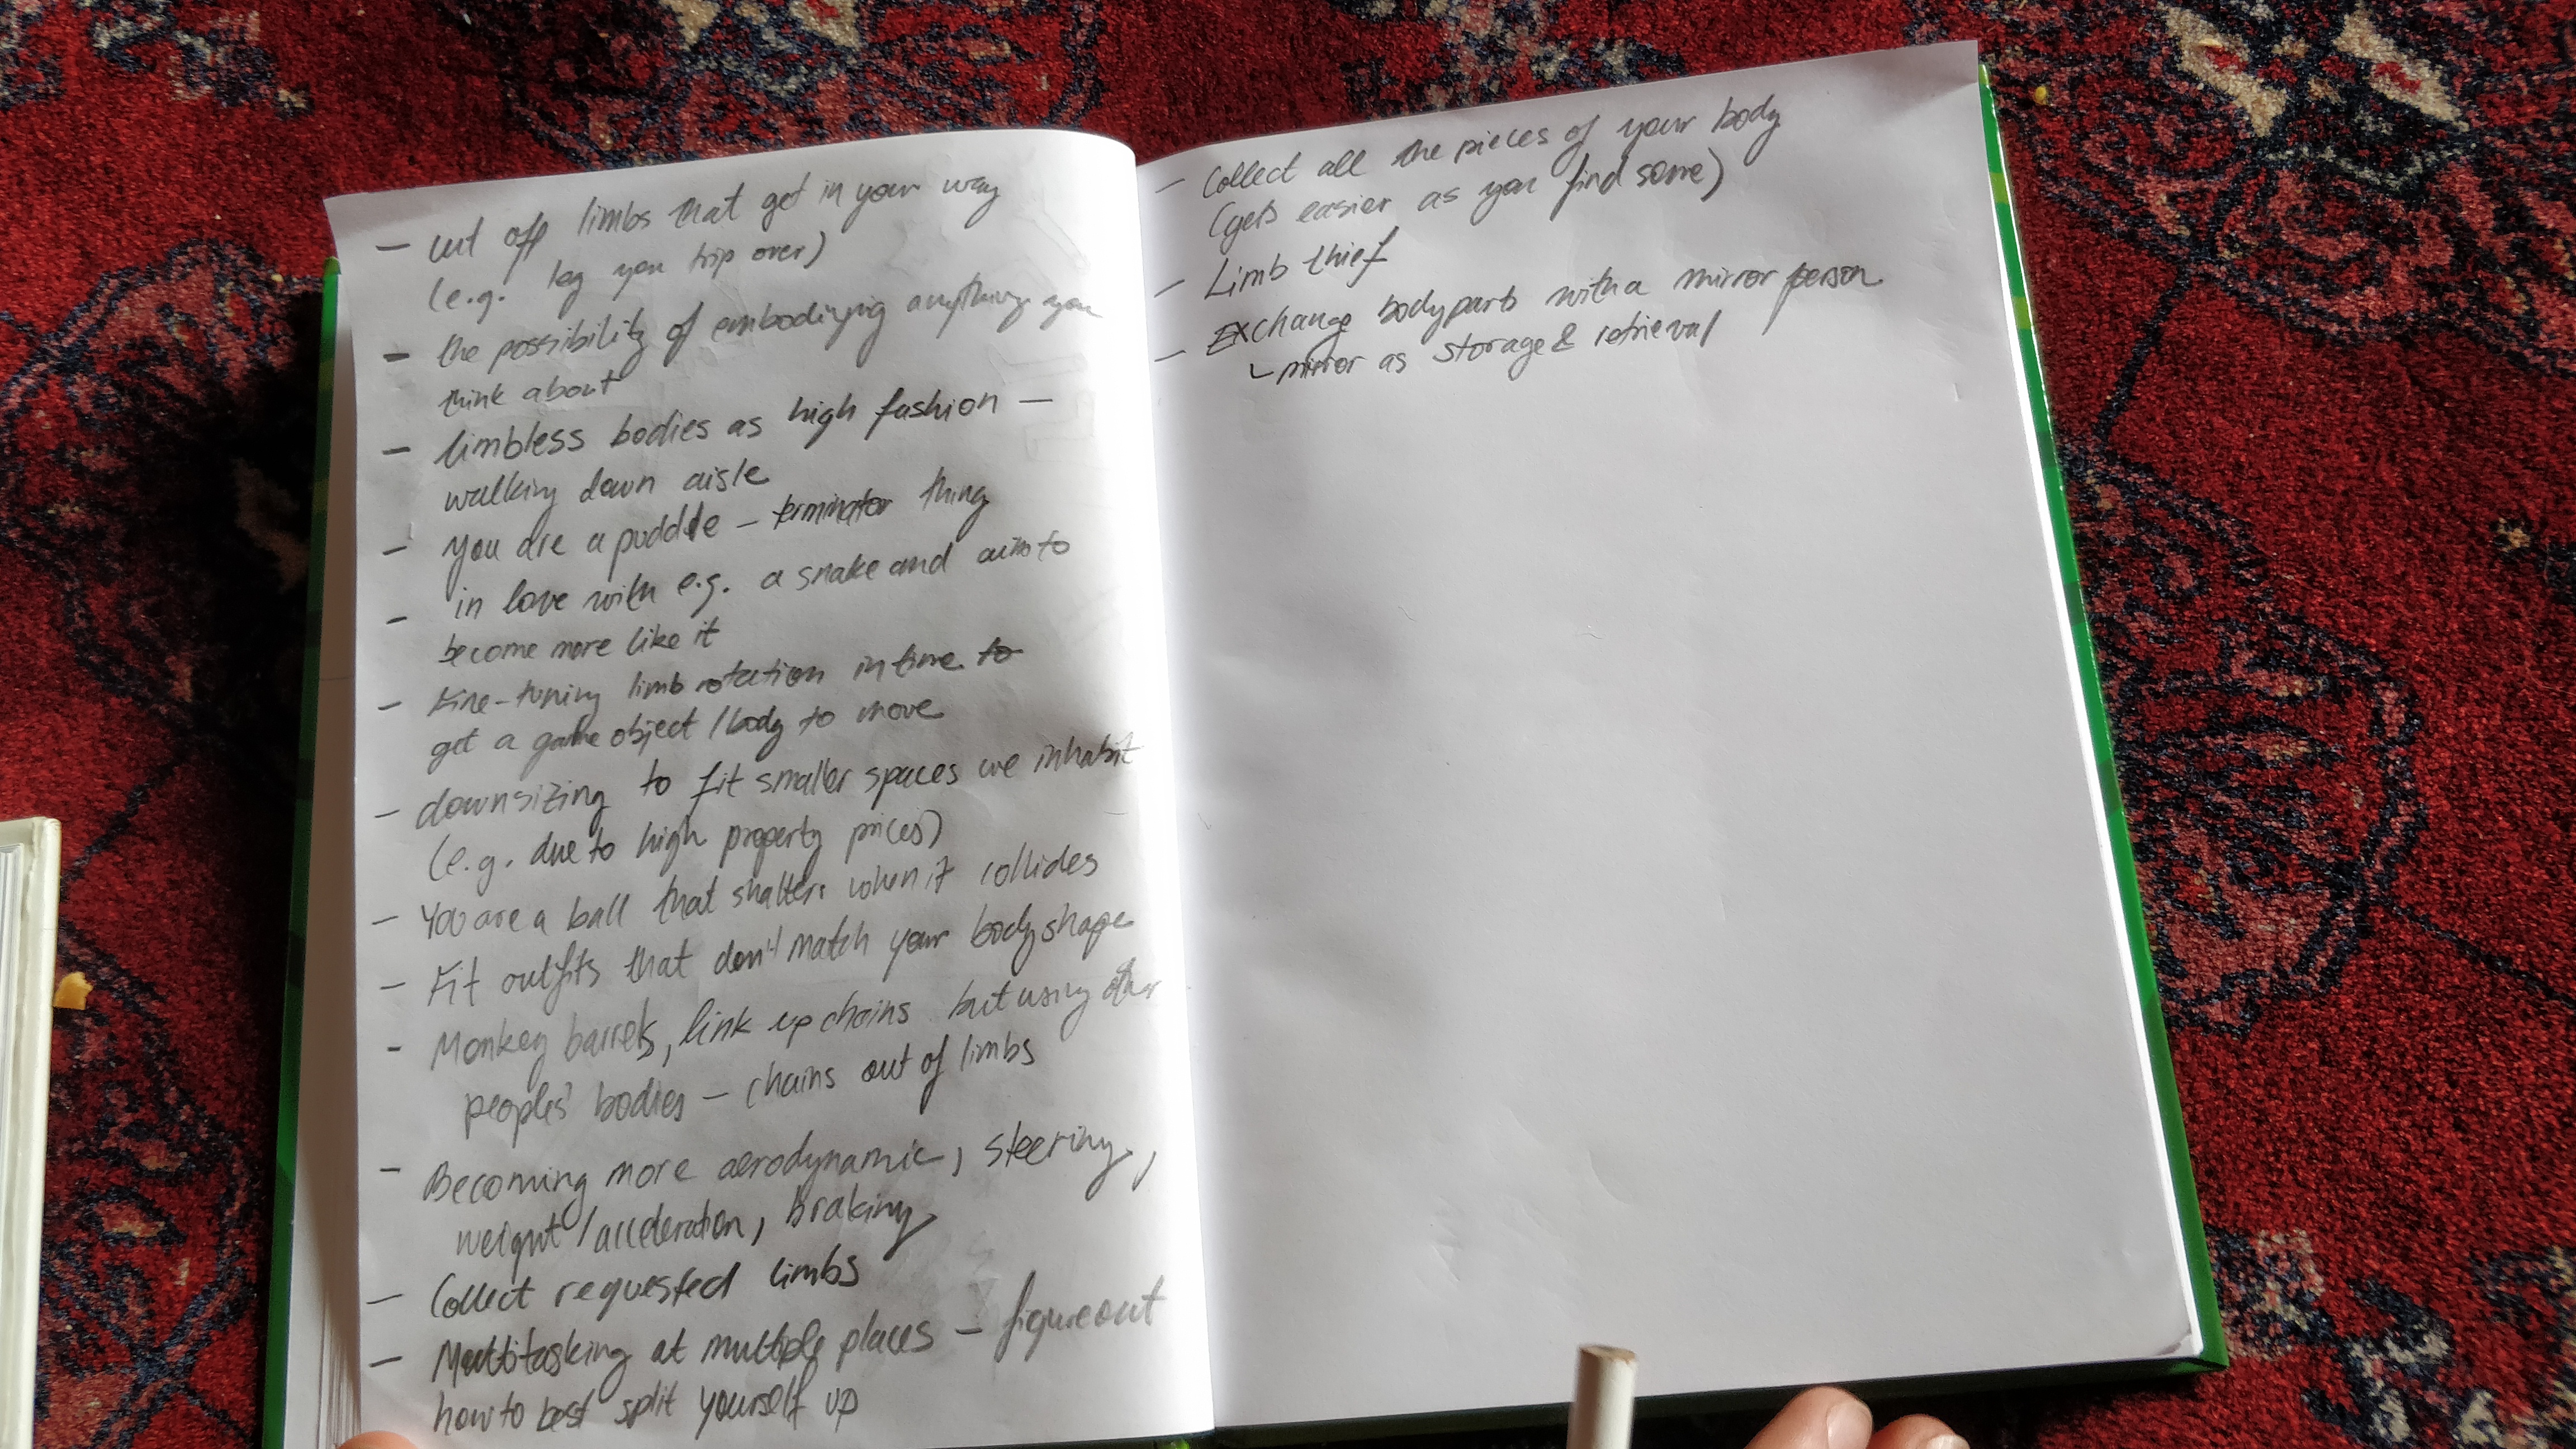 - cut off limbs that get in your way
(e.g. leg you trip over)
- the possibility of embodiyng anything you
think about
- limbless bodies as high fashion -
walking down aisle
- you are a puddle - terminator thing
- in love with e.g. a snake and aim to
become more like it
- Fine-tuning limb rotation in time to
get a game object / body to move
- downsizing to fit smaller spaces we inhabit
(e.g. due to high property prices)
- You are a ball that shatters when it collides
- Fit outfits that don't match your body shape
- Monkey barrels, link up chains but using other
peoples' bodies - chains out of limbs
- Becoming more aerodynamic, steering,
weight / acceleration, Braking,
- Collect requested limbs
- Multitasking at multiple places - figure out
how to best split yourself up
- Collect all the pieces of your body
(gets easier as you find some)
- Limb thief
- Exchange bodyparts with a mirror person
↳ mirror as storage & retrieval